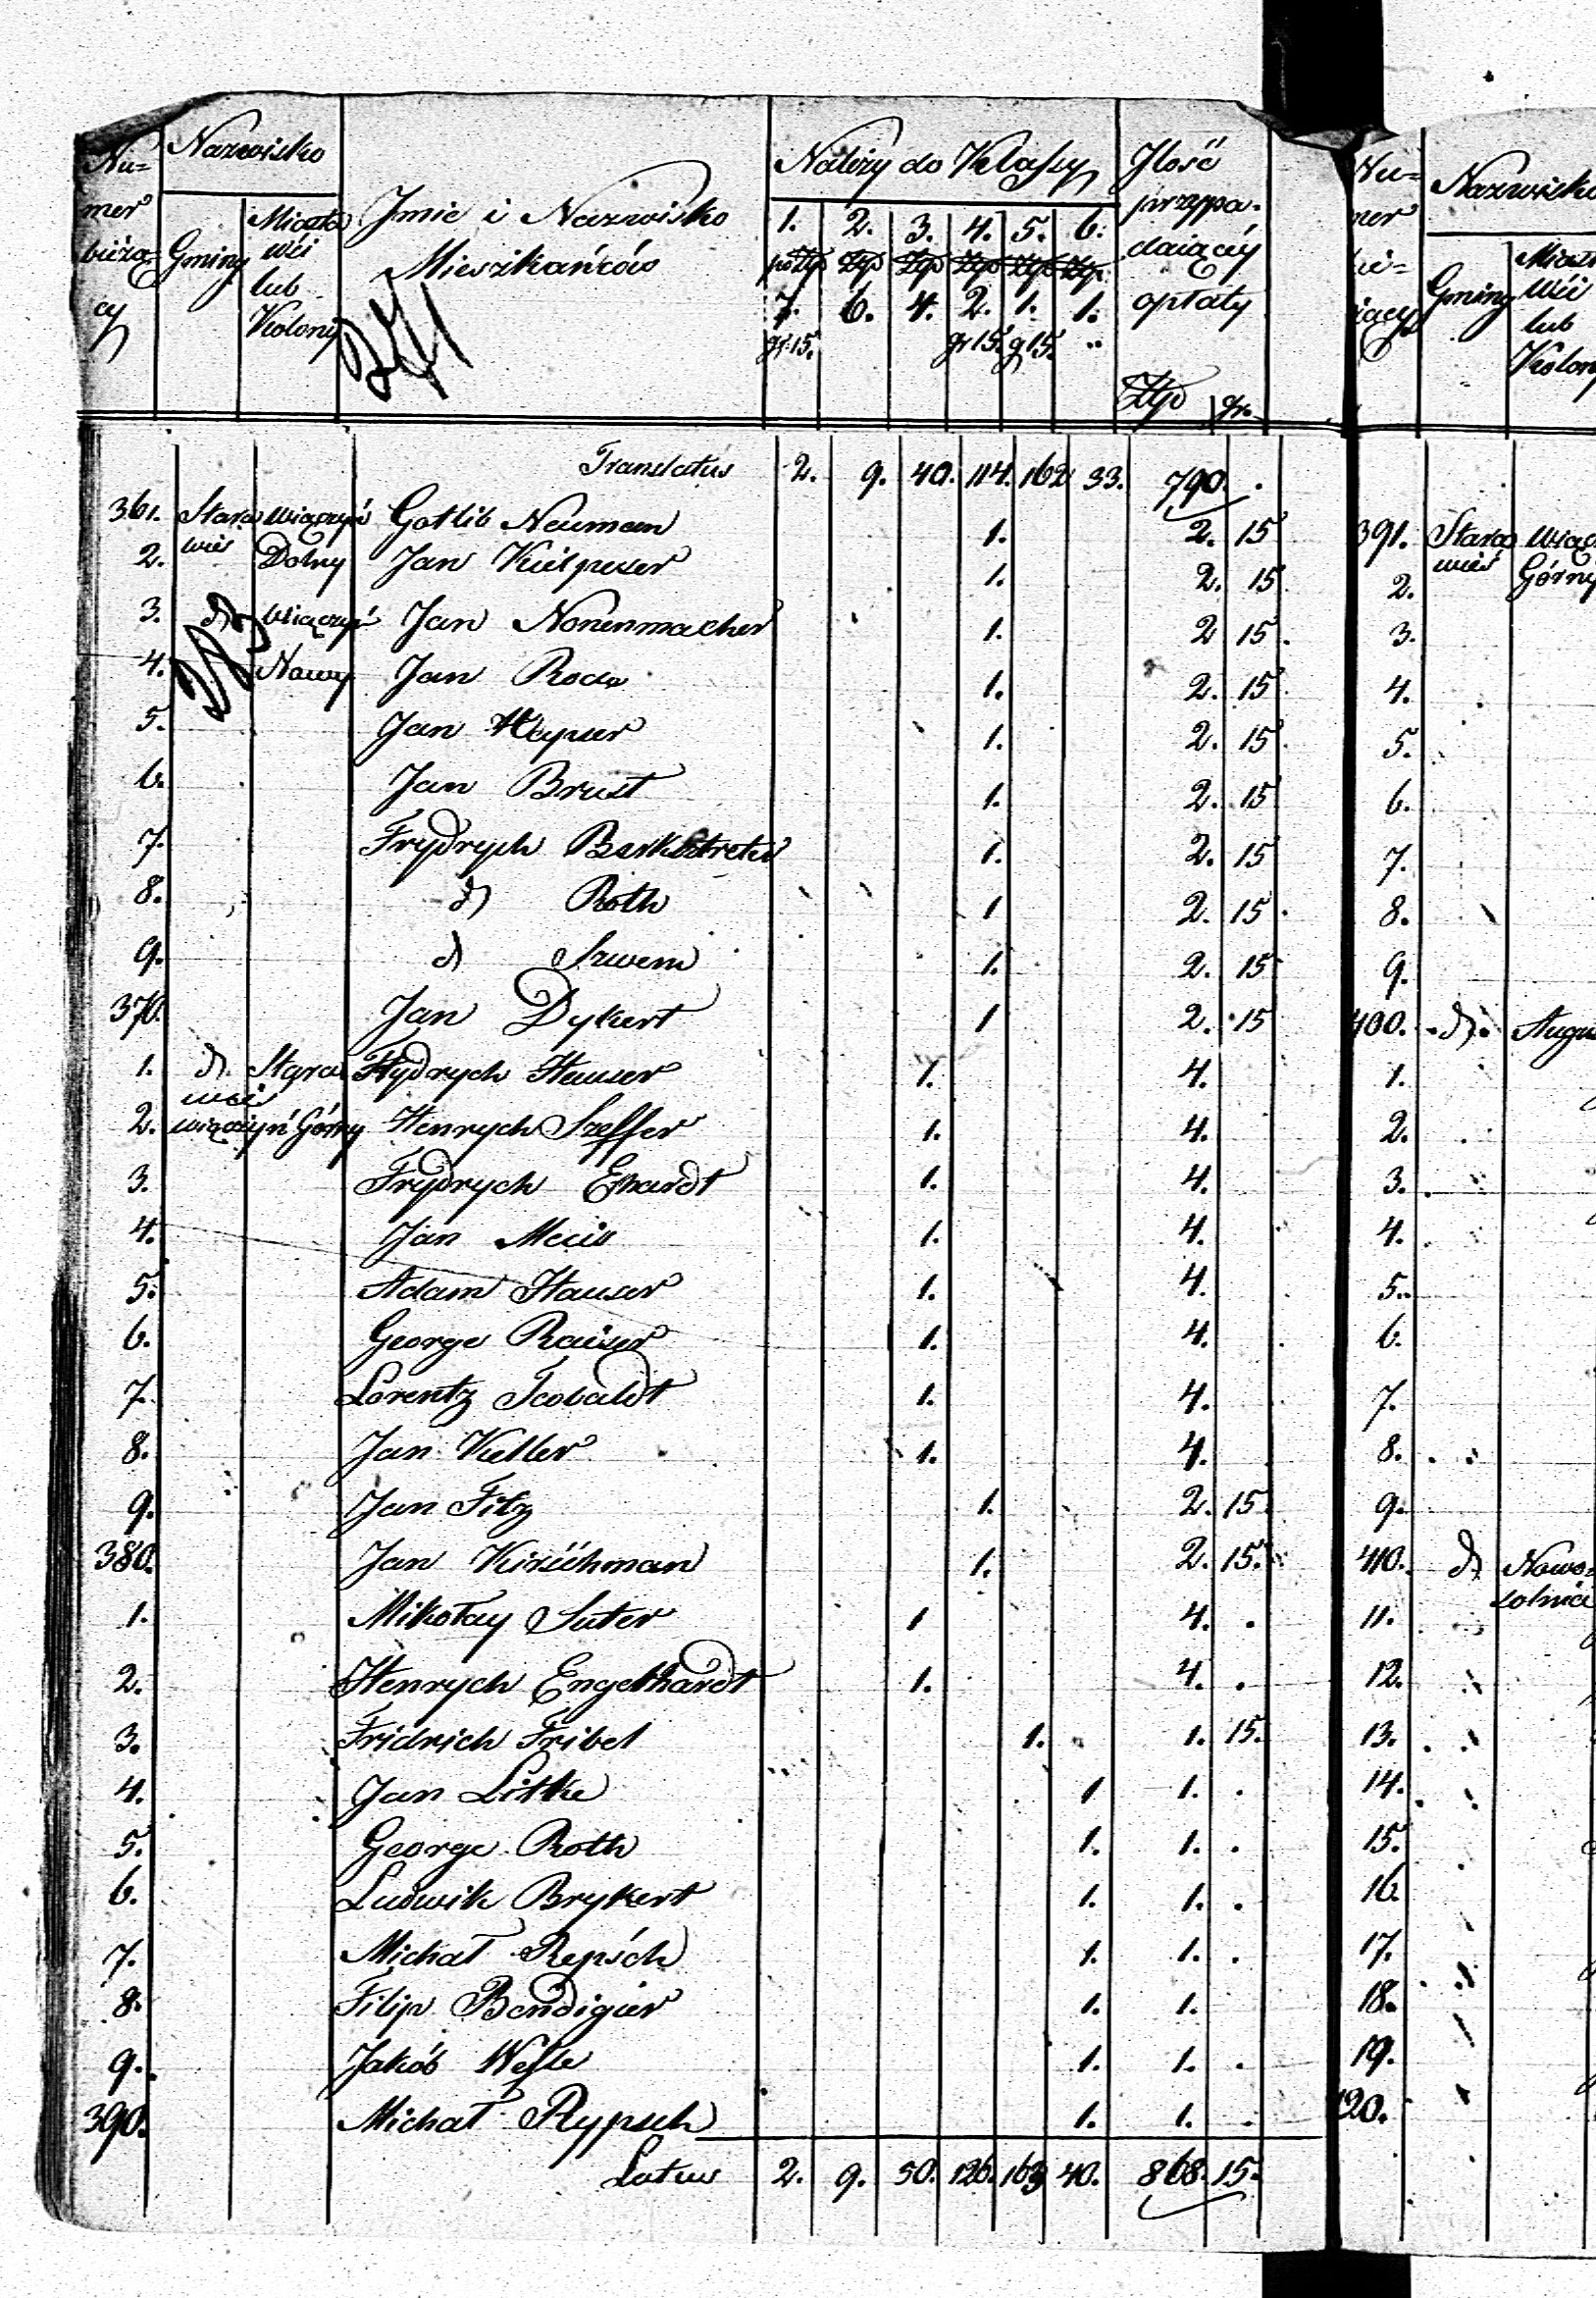 Numer bieżący Nazwisko Gminy Miasta wśi lub Kolony Jmie i Nazwisko Mieszkańców Należy do Klassy Jlość przypadaiącéy opłaty
1. 2. 3. 4. 5. 6.
po Złp Złp Złp Złp Złp Złp
7. 6. 4. 2. 1. 1.
gr 15. gr 15. g 15. "
Złp gr.
Translatus 2. 9. 40. 114. 162 33. 790. .
361. Stara wieś Wiączyń Gotlib Neuman 1. 2. 15
2. Dolny Jan 1. 2. 15
3. d Wiączyń Jan Nonenmacher 1. 2 15.
4. Nowy Jan 1. 2. 15
5. Jan 1. 2. 15.
6. Jan Brust 1. 2. 15
7. Frydrych 1. 2. 15
8. d Roth 1 2. 15.
9. d Szwem 1. 2. 15
370. Jan Dykert 1 2. 15
1. d. Stara wieś Frydrych Hauser 1. 4.
2. Wiączyń Górny Henrych Szeffer 1. 4.
3. Frydrych Erhardt 1. 4.
4. Jan 1. 4.
5. Adam Hauser 1. 4.
6. George Rauser 1. 4.
7. Lorentz Teobaldt 1. 4.
8. Jan Keller 1. 4.
9. Jan Filz 1. 2. 15.
380. Jan Kirschman 1. 2. 15.
1. Mikołay Suter 1 4. .
2. Henrych Engelhardt 1. 4. .
3. Fridrich Fribel 1. 1. 15.
4. Jan Litke 1 1. .
5. George Roth 1. 1. .
6. Ludwik Brykert 1. 1. .
7. Michał Repsch 1. 1. .
8. Filip Bendigier 1. 1.
9. Jakób Wesle 1. 1. .
390. Michał Rypsch 1. 1. .
Latus 2. 9. 50. 126. 163 40. 868. 15.
Numer bieżący Nazwisko Gminy Miasta Wśi lub Kolony
391. Stara wieś Wiącz
2. Górny
3.
4.
5.
6.
7.
8.
9.
400. d. Augus
1.
2.
3.
4.
5.
6.
7.
8.
9.
410. d Nowo-
11. solnia
12.
13.
14.
15.
16.
17.
18.
19.
420.